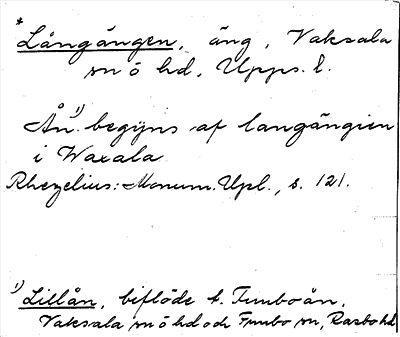 * Långängen, äng, Vaksala
sn o hd, Upps. l.
Ån ¹) begijns af langängien
i Waxala
Rhezelius: Monum. Upl., s. 121.
¹) Lillån, biflöde t. Funboån,
Vaksala sn o hd och Funbo sn, Rasbo hd